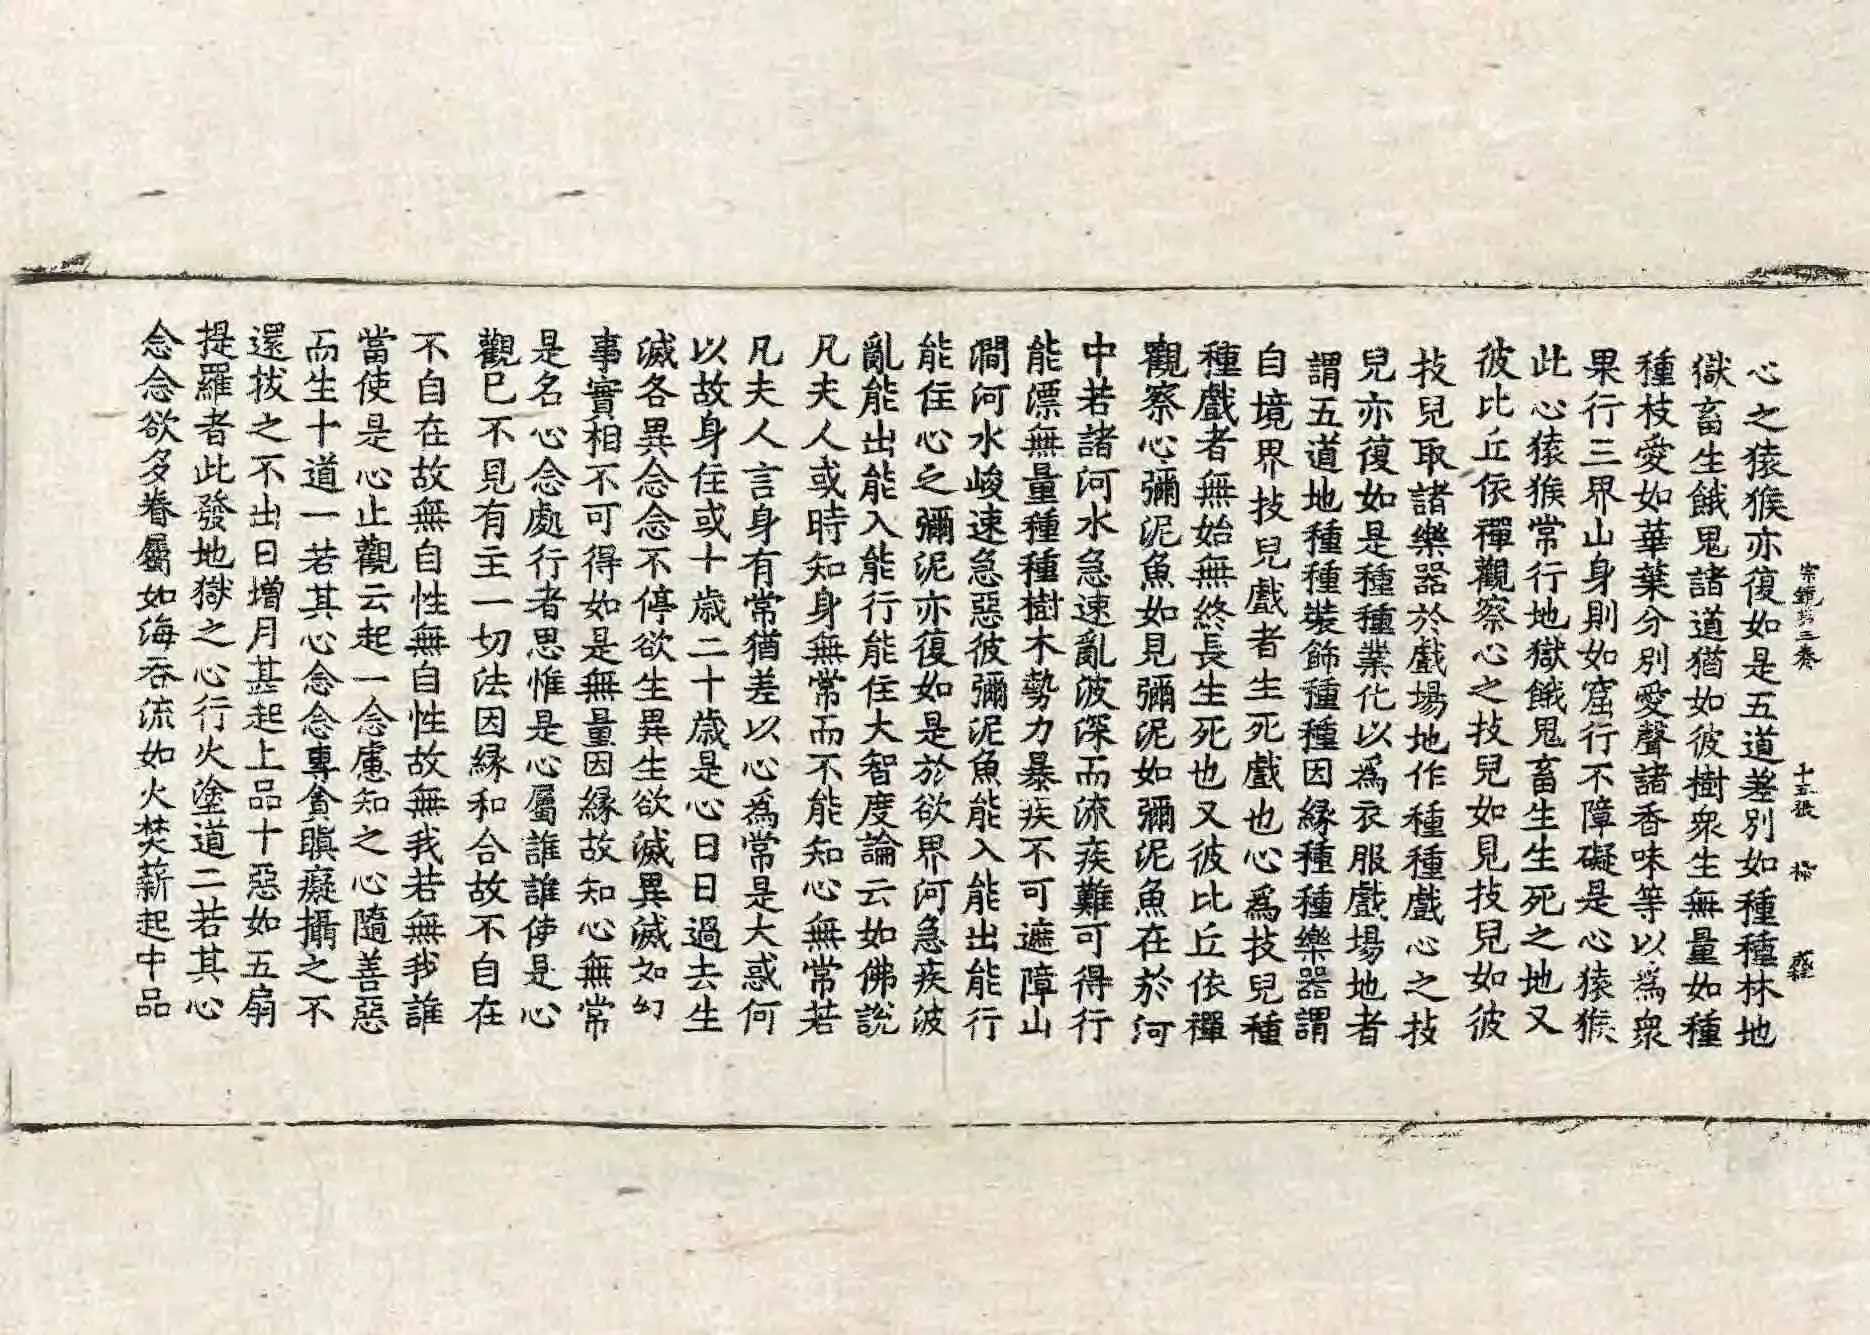 宗鏡第三卷　十五張　㯳
心之猿猴亦復如是五道差別如種種林地
獄畜生餓鬼諸道猶如彼樹衆生無量如種
種枝愛如華葉分別愛聲諸香味等以爲衆
果行三界山身則如窟行不障礙是心猿猴
此心猿猴常行地獄餓鬼畜生生死之地又
彼比丘依禪觀察心之技兒如見技兒如彼
技兒取諸樂器於戲場地作種種戲心之技
兒亦復如是種種業化以爲衣服戲場地者
謂五道地種種裝飾種種因緣種種樂器謂
自境界技兒戲者生死戲也心爲技兒種
種戲者無始無終長生死也又彼比丘依禪
觀察心彌泥魚如見彌泥如彌泥魚在於河
中若諸河水急速亂波深而流疾難可得行
能漂無量種種樹木勢力暴疾不可遮障山
澗河水峻速急惡彼彌泥魚能入能出能行
能住心之彌泥亦復如是於欲界河急疾波
亂能出能入能行能住大智度論云如佛說
凡夫人或時知身無常而不能知心無常若
凡夫人言身有常猶差以心爲常是大惑何
以故身住或十歲二十歲是心日日過去生
滅各異念念不停欲生異生欲滅異滅如幻
事實相不可得如是無量因緣故知心無常
是名心念處行者思惟是心屬誰誰使是心
觀已不見有主一切法因緣和合故不自在
不自在故無自性無自性故無我若無我誰
當使是心止觀云起一念慮知之心隨善惡
而生十道一若其心念念專貪瞋癡攝之不
還拔之不出日增月甚起上品十惡如五扇
提羅者此發地獄之心行火塗道二若其心
念念欲多眷屬如海吞流如火焚薪起中品